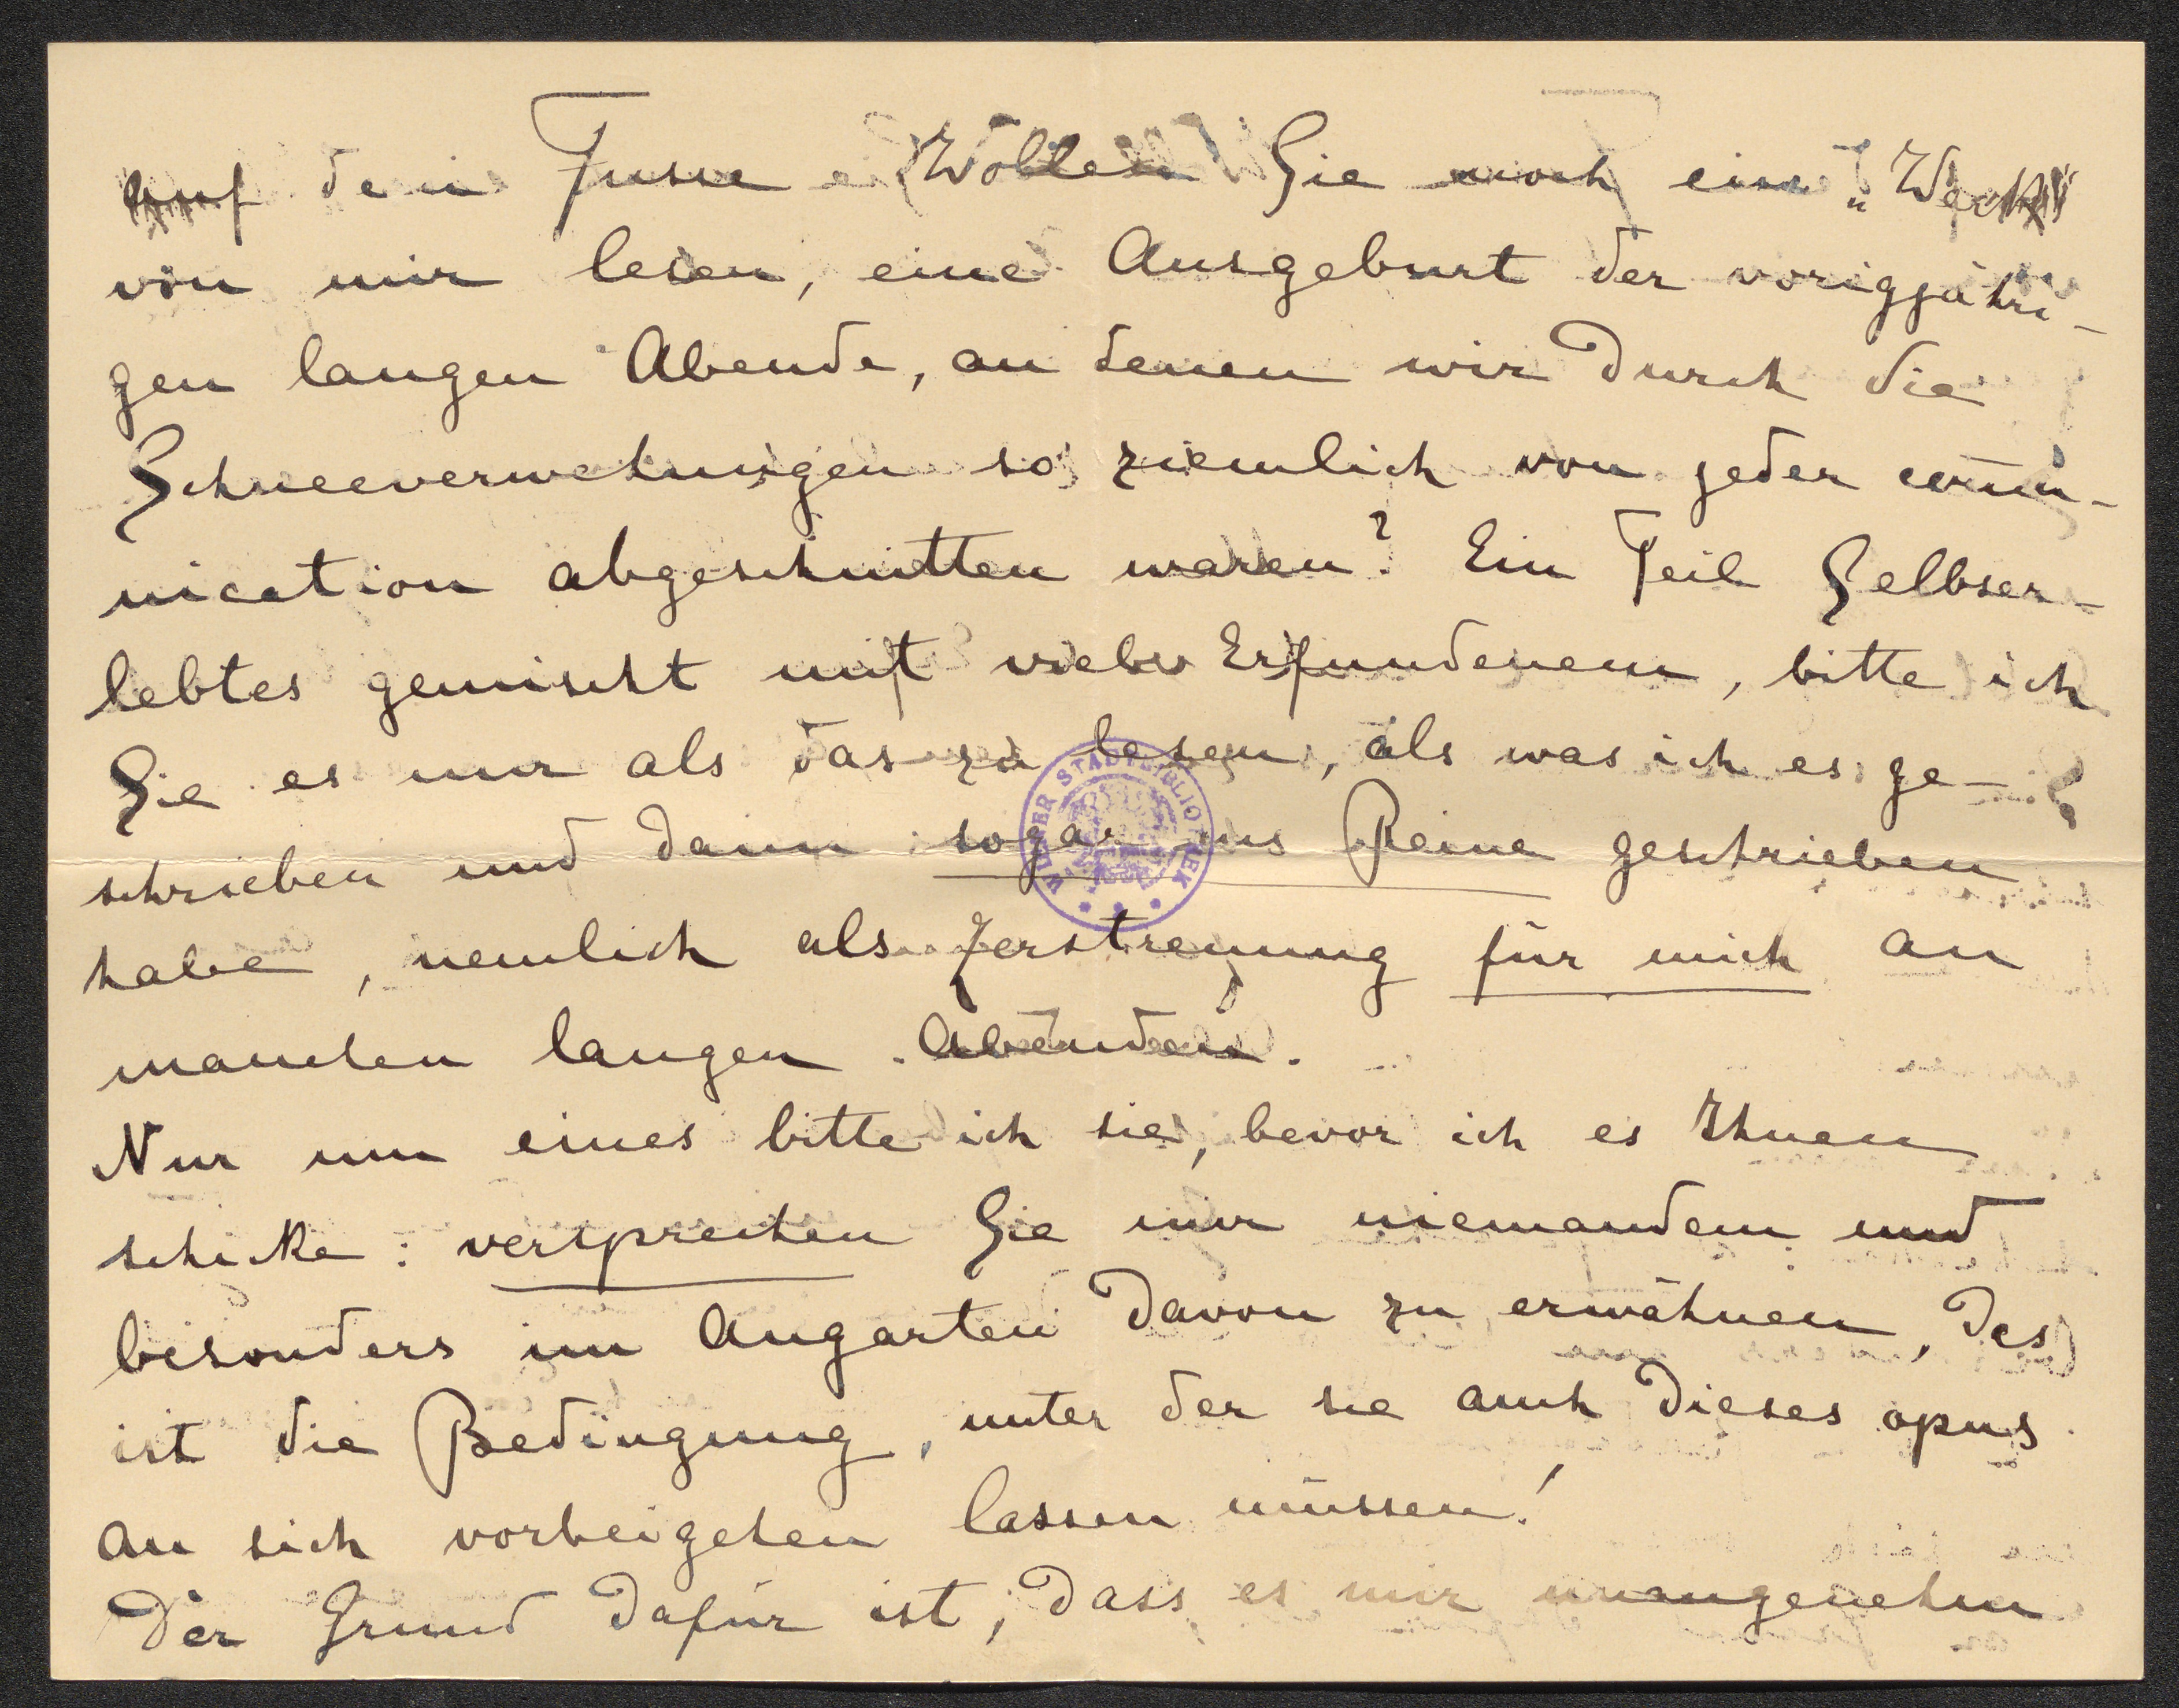 auf dem Fusse. Wollen Sie noch ein „Werk"
von mir lesen, eine Ausgeburt der vorigjähri-
gen langen Abende, an denen wir durch die
Schneeverwehungen so ziemlich von jeder comu̅-
nication abgeschnitten waren? Ein Teil Selbser-
lebtes gemischt mit viel Erfundenem, bitte ich
Sie es nur als das zu lesen, als was ich es ge-
schrieben und dann sogar ins Reine geschrieben
habe, nemlich als Zerstreuung für mich an
manchen langen Abenden.
Nur um eines bitte ich sie, bevor ich es Ihnen
schicke: versprechen Sie mir niemandem und
besonders im Augarten davon zu erwähnen, das
ist die Bedingung, unter der sie auch dieses opus
an sich vorbeigehen lassen müssen!
Der Grund dafür ist, dass es mir unangenehm
WIENER STADTBIBLIOTHEK